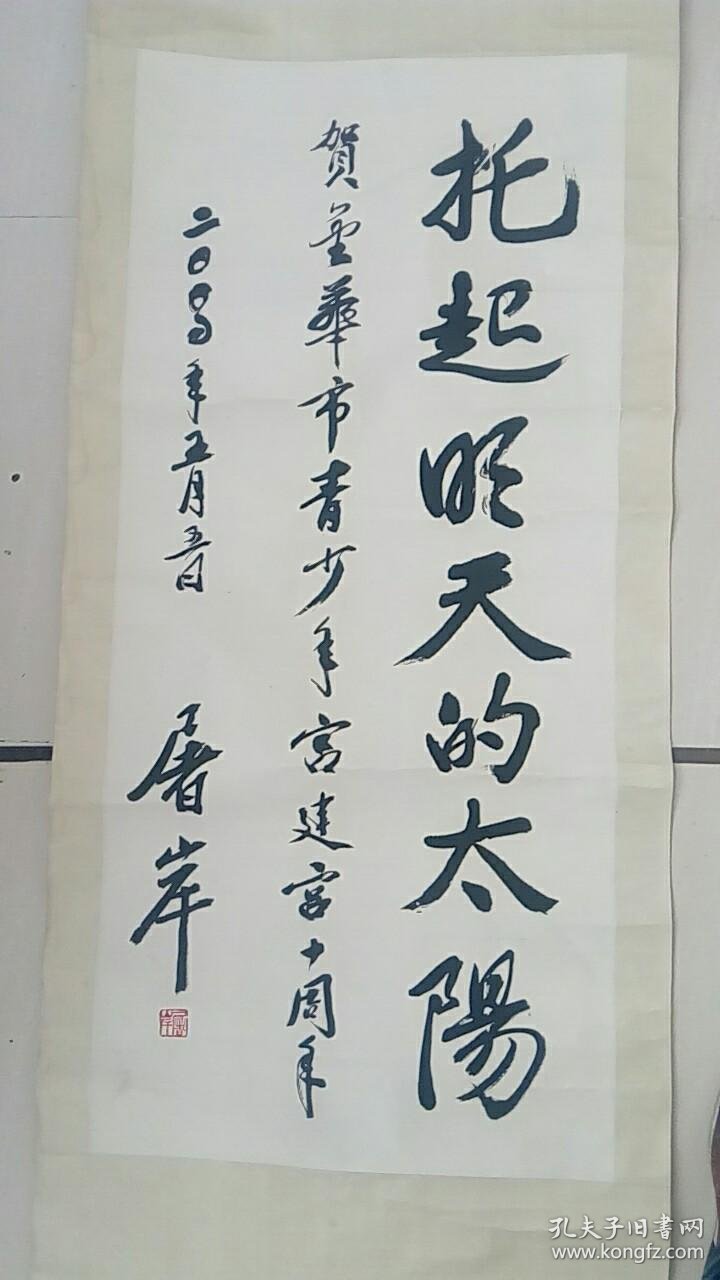 托起明天的太陽
賀金華市青少年宫建宫十周年
二00四年五月五日
屠岸
孔夫子旧书网
www.kongfz.com